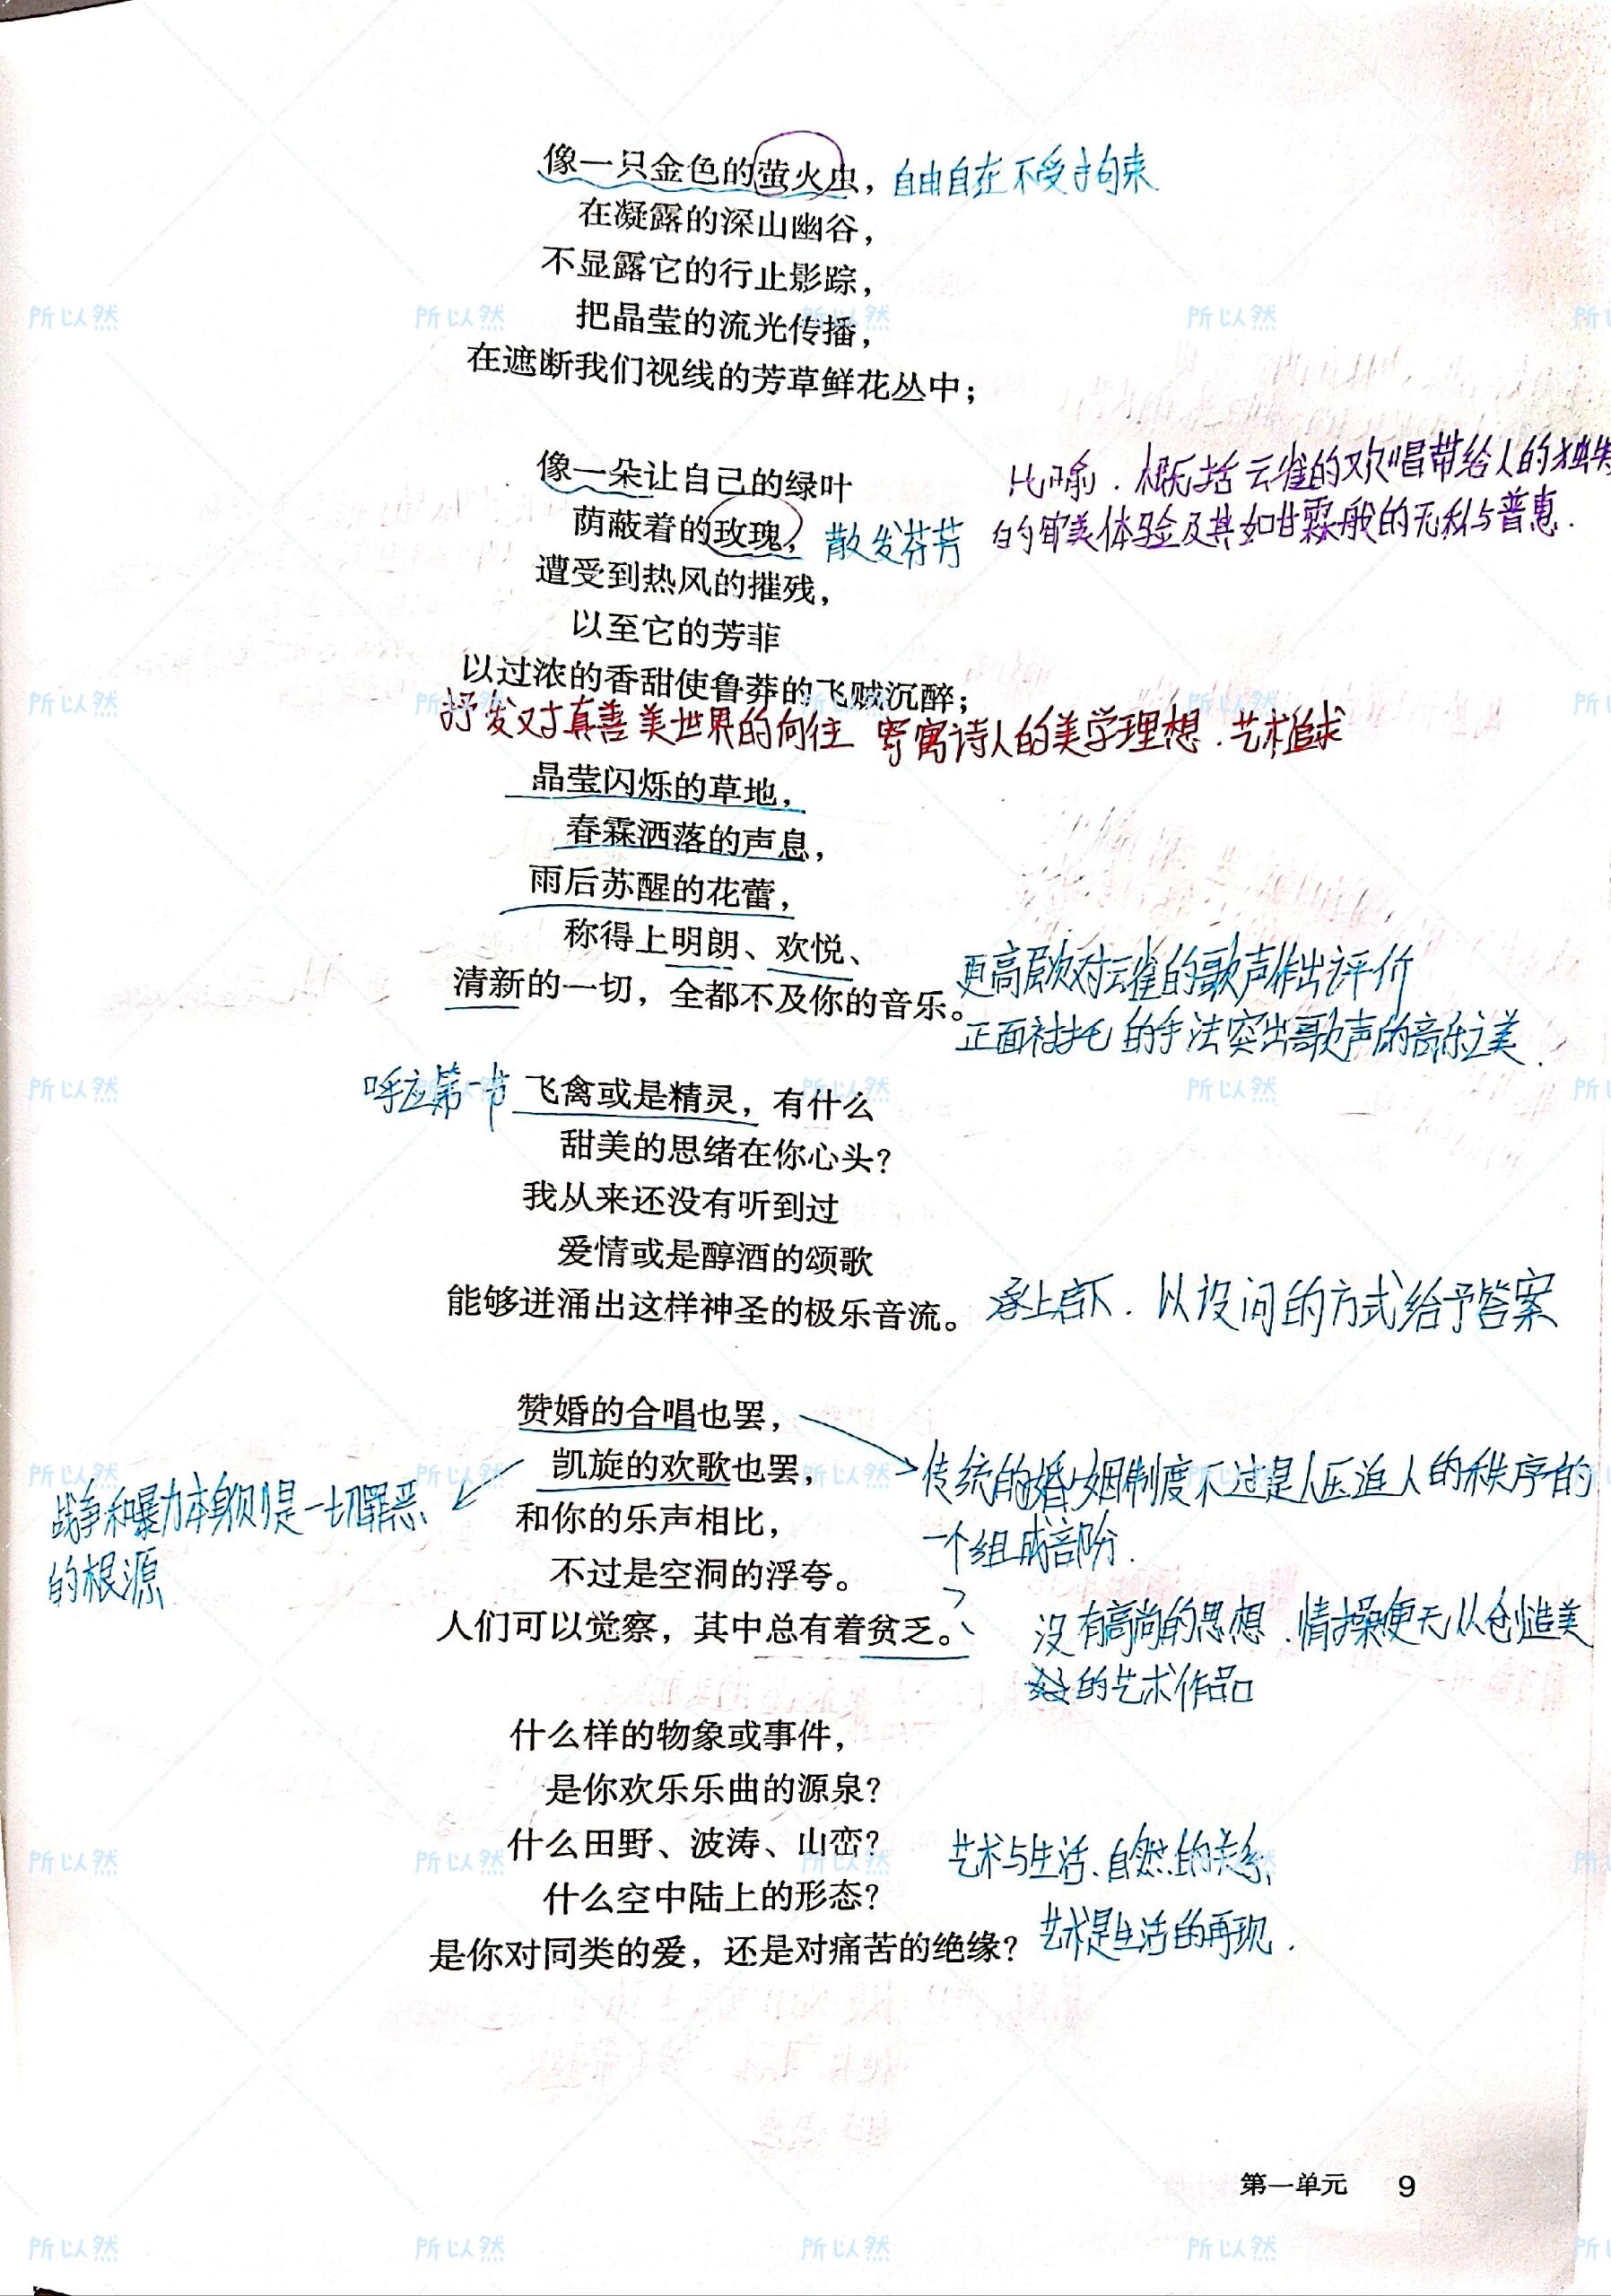 像一只金色的萤火虫， 自由自在不受拘束
在凝露的深山幽谷，
不显露它的行止影踪，
把晶莹的流光传播，
在遮断我们视线的芳草鲜花丛中；
像一朵让自己的绿叶
比喻．概括云雀的欢唱带给人的独特
荫蔽着的玫瑰， 散发芬芳
的审美体验及其如甘霖般的无私与普惠．
遭受到热风的摧残，
以至它的芳菲
以过浓的香甜使鲁莽的飞贼沉醉；
抒发对真善美世界的向往 寄寓诗人的美学理想．艺术追求
晶莹闪烁的草地，
春霖洒落的声息，
雨后苏醒的花蕾，
称得上明朗、欢悦、
清新的一切，全都不及你的音乐。
更高层次对云雀的歌声作出评价
正面衬托的手法突出歌声的音乐之美．
呼应第一节 飞禽或是精灵，有什么
甜美的思绪在你心头？
我从来还没有听到过
爱情或是醇酒的颂歌
能够迸涌出这样神圣的极乐音流。 承上启下．以设问的方式给予答案
赞婚的合唱也罢，
凯旋的欢歌也罢，
传统的婚姻制度不过是人压迫人的秩序的
一个组成部份．
战争和暴力本身则是一切罪恶
的根源
和你的乐声相比，
不过是空洞的浮夸。
人们可以觉察，其中总有着贫乏。
没有高尚的思想．情操便无从创造美
的艺术作品
什么样的物象或事件，
是你欢乐乐曲的源泉？
什么田野、波涛、山峦？ 艺术与生活、自然的关系
什么空中陆上的形态？
是你对同类的爱，还是对痛苦的绝缘？ 艺术是生活的再现．
第一单元 9
所以然